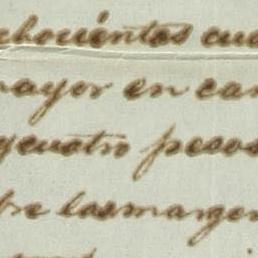 chocientos cua
mayor en can
y cuatro pesos
bre las margen